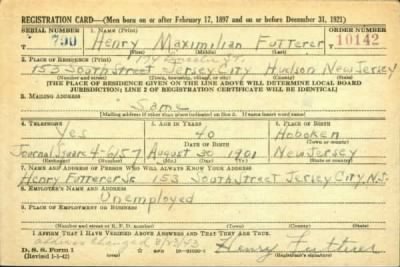 REGISTRATION CARD—(Men born on or after February 17, 1897 and on or before December 31, 1921)
SERIAL NUMBER 1. NAME (Print) ORDER NUMBER
790 Henry Maximilian Futterer 10142
(First) (Middle) (Last)
2. PLACE OF RESIDENCE (Print)
153 South Street Jersey City Hudson New Jersey
(Number and street) (Town, township, village, or city) (County) (State)
[THE PLACE OF RESIDENCE GIVEN ON THE LINE ABOVE WILL DETERMINE LOCAL BOARD
JURISDICTION; LINE 2 OF REGISTRATION CERTIFICATE WILL BE IDENTICAL]
3. MAILING ADDRESS
Same
[Mailing address if other than place indicated on line 2. If same insert word same]
4. TELEPHONE 5. AGE IN YEARS 6. PLACE OF BIRTH
Yes 40 Hoboken
DATE OF BIRTH (Town or county)
Journal Square 4-6157 August 30 1901 New Jersey
(Exchange) (Number) (Mo.) (Day) (Yr.) (State or country)
7. NAME AND ADDRESS OF PERSON WHO WILL ALWAYS KNOW YOUR ADDRESS
Henry Futterer Sr. 153 South Street Jersey City, N.J.
8. EMPLOYER'S NAME AND ADDRESS
Unemployed
9. PLACE OF EMPLOYMENT OR BUSINESS
(Number and street or R. F. D. number) (Town) (County) (State)
I AFFIRM THAT I HAVE VERIFIED ABOVE ANSWERS AND THAT THEY ARE TRUE.
address changed
D. S. S. Form 1 Henry Futterer
(Revised 1-1-42) (Registrant's signature)